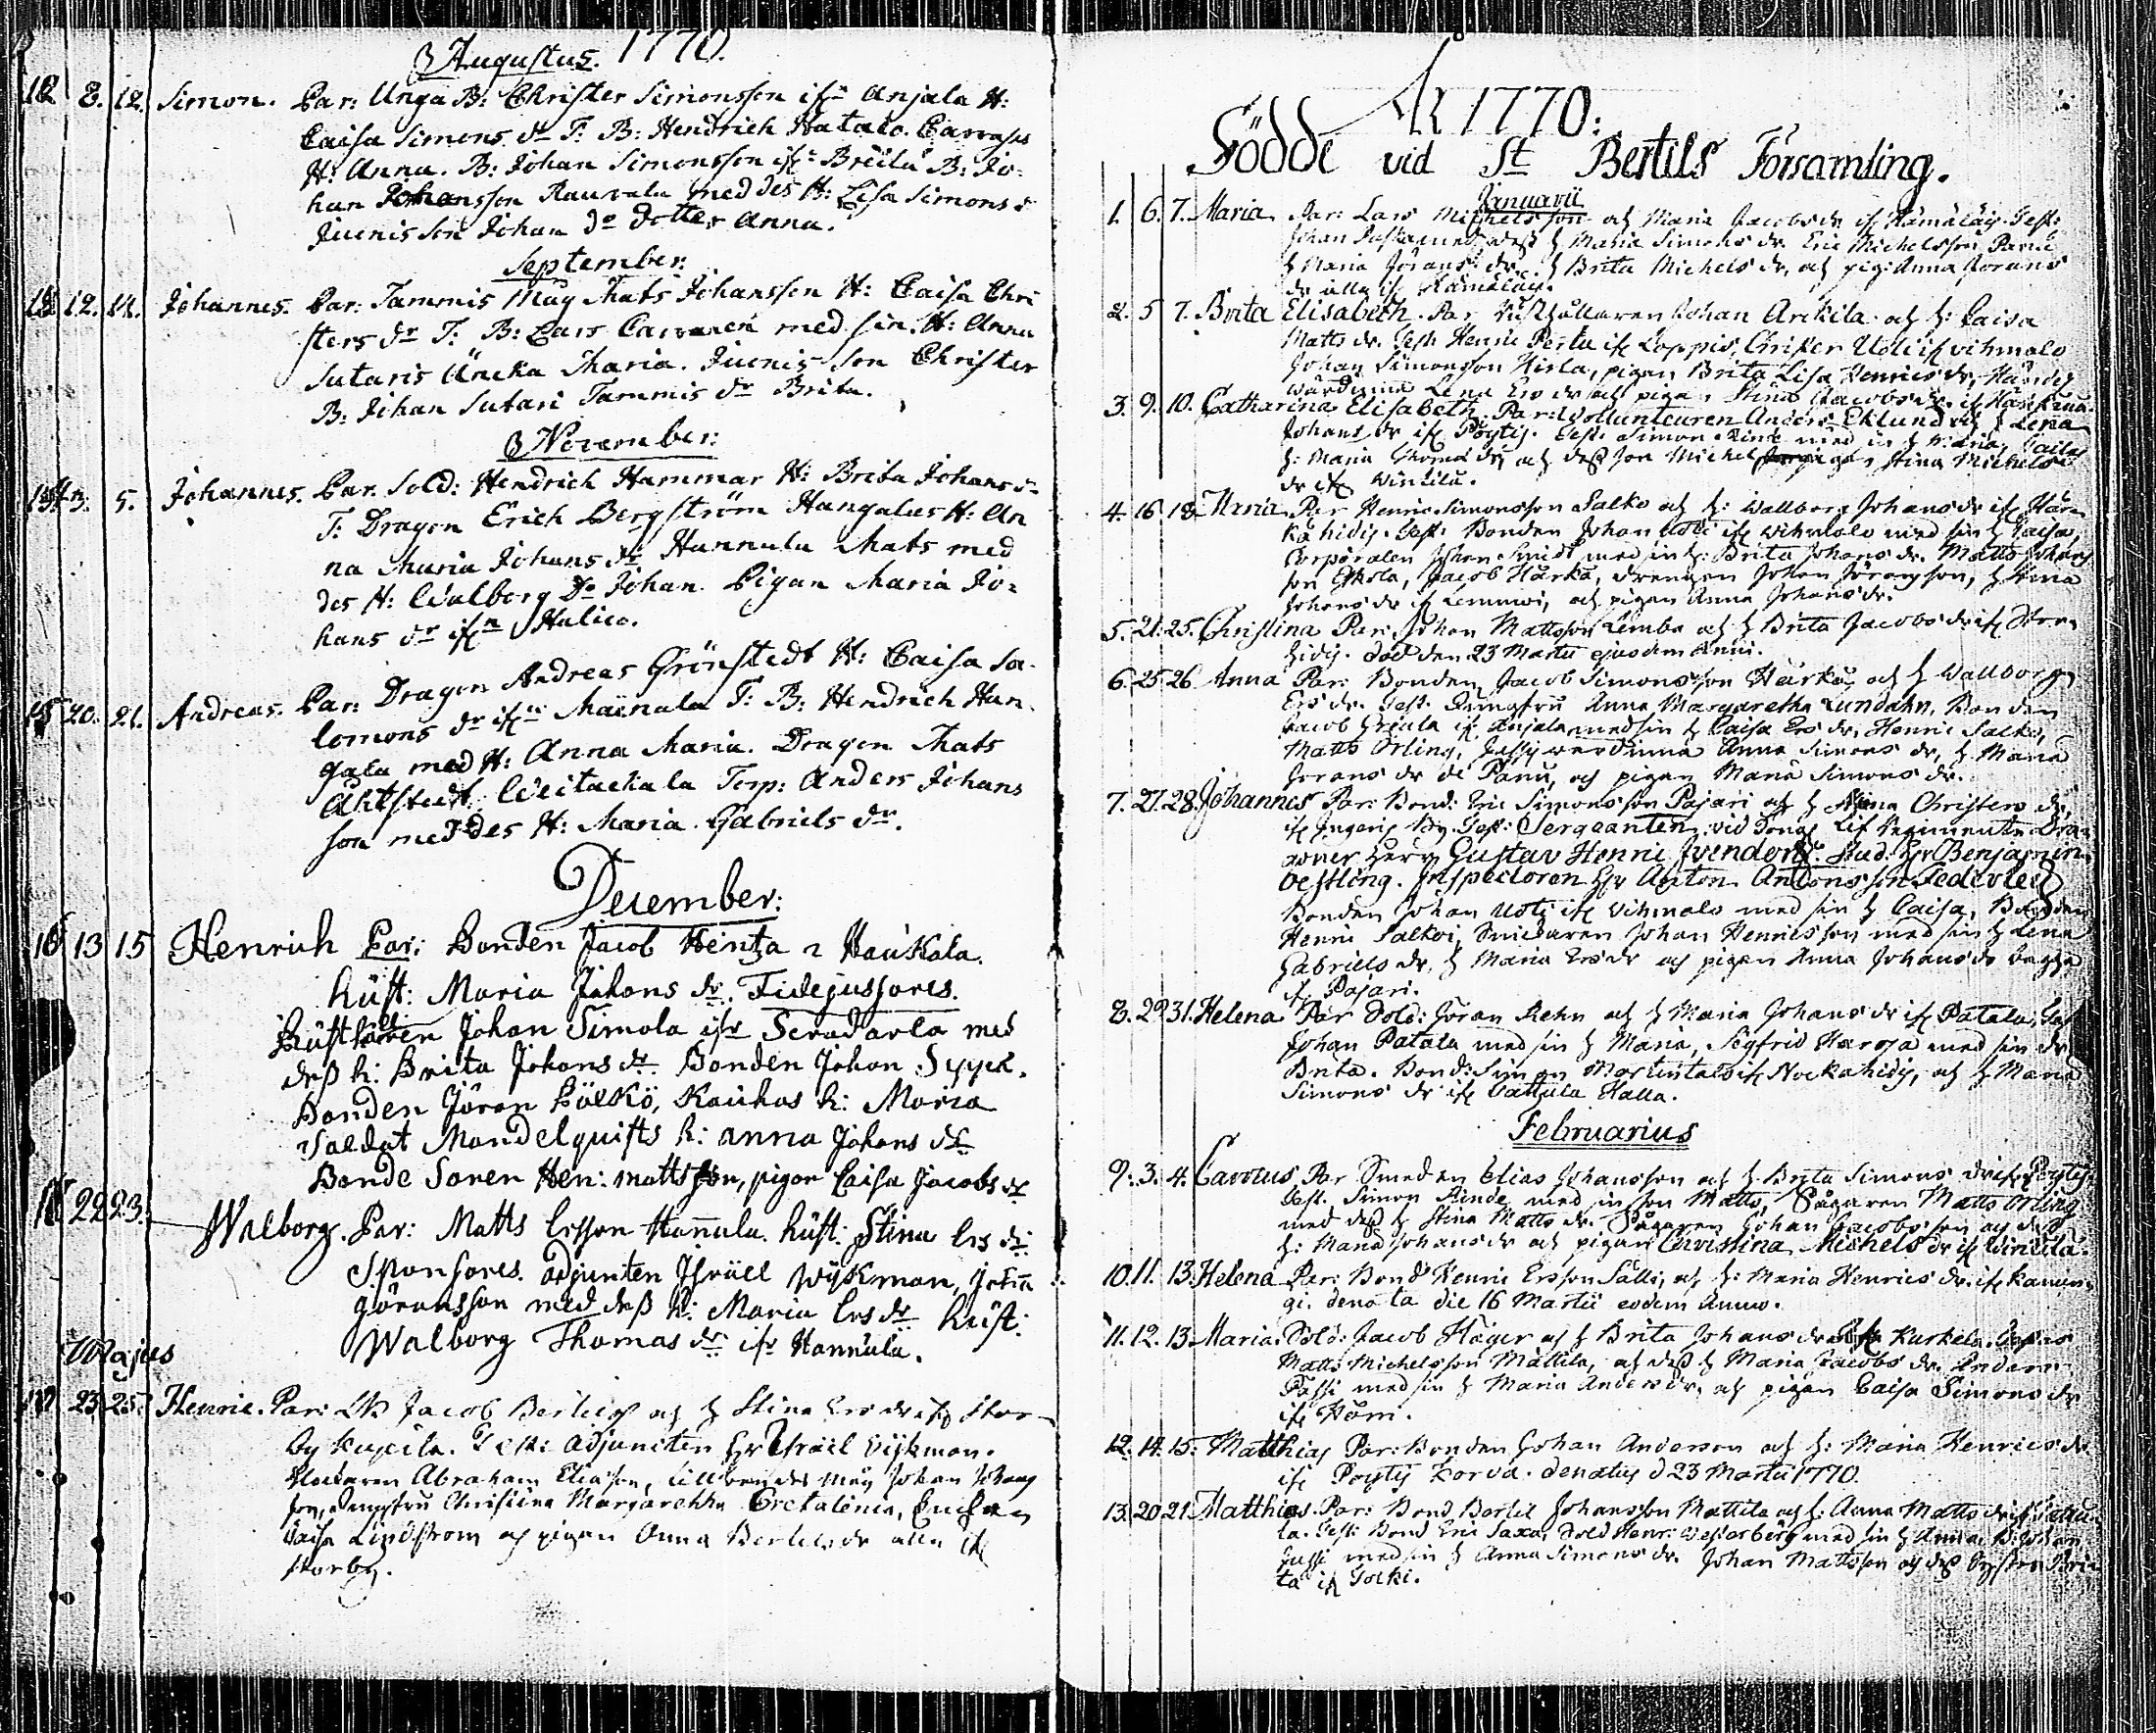 Augustus. 1770.
12 8. 12. Simon. Par: Unga B: Christer Simonsson ifrn Anjala H:
Caisa Simons dr T: B: Hendrich Hatala.
H: Anna. B: Johan Simonsson ifr B: Jo-
han Johansson Rauvala med des H: Lisa Simons
Juenis son Johan do dotter Anna.
September:
12. 14. Johannes. Par: Tammis Måg Mats Johansson H: Caisa Chri
sters dr T: B: Lars med sin H: Anna
Sutaris Maria. Juenis son Christer
B: Johan Sutari Tammis dr Brita.
November:
3. 5. Johannes. Par. Sold: Hendrich Hammar H: Brita Johans d
T: Dragon Erich Bergström Hangalus H: An
na Maria Johans dr Hannula Mats med
des H: Walborg Do Johan. Pigan Maria Jo-
hans dr ifrn Halico.
20. 21. Andreas. Par: Dragon Andreas Grönstedt H: Caisa Sa-
lomons dr ifrn Mainala T: B: Hendrich Han
gala med H: Anna Maria. Dragon Mats
Ahlstedt Torp: Anders Johans
son med des H: Maria Gabriels dr.
December:
16 13 15 Henrich Par: Bonden Jacob Heinta Haukala.
hust: Maria Johans dr. Fidejussores.
Rusthållaren Johan Simola ifr med
dess h: Brita Johans dr Bonden Johan
Bonden Jöran Pölkö, Kauhas h: Maria
Soldat Mandelquists h: anna Johans dr
Bonde Sonen Hen: mattsson, pigan Caisa Jacobs dr
22 23. Walborg. Par: Matts Ersson Hannula. hust: Stina Ers dr
Sponsores. adjuncten Israel Wijkman, Johan
göransson med dess h: Maria Ers dr hust:
Walborg Thomas dr ifr Hannula.
Majus
23 25 Henric. Par: Jacob Bertils och h Stina Ers dr ifr Stor-
by Test: Adjuncten Hr Israel Vijkman.
Klockaren Abraham Eliasson, måg Johan Johans
son, Jungfru Christina Margaretha
Caisa Lindström och pigan Anna Bertils dr alla if
storby.
År 1770:
Födde vid St Bertils Församling.
Januarii
1. 6. 7. Maria Par: Lars Michelsson och Maria Jacobs dr if Hämäläis. Test:
Johan med dess h Maria Simons dr Eric Michelsson
h Maria Jörans dr. h Brita Michels dr, och pig: Anna Jorans
dr alla if Hämäläis.
2. 5 7. Brita Elisabeth. Par Rusthållaren Johan Arckila och h: Caisa
Matts dr. Test: Henric Pertu if Loppis, Christer Uoti if Vihmalo
Johan Simonsson Hirla, pigan Brita Lisa Henrics dr,
Wärdinna Lena Ers dr och pigan Stina Jacobs dr. if
3. 9. 10. Catharina Elisabeth. Par: Volunteuren Anders Eklund och h Lena
Johans dr if Pöytis. Test: Simon Rinde med sin h Maria,
h: Maria Thomas dr, och dess son Michel pigan Stina Michels
dr if Wintila.
4. 16 18. Maria Par Henric Simonsson Salko och h: Wallborg Johans dr if Har-
kahidis. Test: Bonden Johan Uoti if Wihmalo med sin h Caisa,
Corporalen Johan Smidt med sin h: Brita Johans dr. Matts Johans
son Eskola, Jacob Härkä, drengen Johan Jöransson, h Anna
Johans dr if Lemmoi, och pigan Anna Johans dr.
5. 21. 25. Christina Par: Johan Mattsson Lembo och h Brita Jacobs dr if
hidis. död den 23 Martii ejusdem Anni.
6. 25 26 Anna Par: Bonden Jacob Simonsson Härkä och h Wallborg
Ers dr. Test: Jungfru Anna Margaretha Lundahn, Bonden
Jacob if Anjala med sin h Caisa Ers dr, Henric Salko,
Matts Örling, wärdinna Anna Simons dr, h Maria
Jorans dr de Panu, och pigan Maria Simons dr.
7. 27. 28. Johannes Par: Bond: Eric Simonsson Pajari och h Stina Christers dr,
if Ingeris By. Test: Sergeanten vid Kongl Lif Regimente Dra-
goner Herr Gustav Henric Stud: Hr Benjamin
Oestling. Inspectoren Hr Anton Antonsson
Bonden Johan Uoti if Vihmalo med sin h Caisa, Bonden
Henric Salkoi, Smedaren Johan Henricsson med sin h Lena
Gabriels dr, h Maria Ers dr och pigan Anna Johans dr bägge
if Pajari.
8. 29 31. Helena Par Sold: Jöran Rehn och h Maria Johans dr if Patala,
Johan Patala med sin h Maria, Sigfrid Haroja med sin dr
Brita. Bond: Simon if Nockahidis, och h Maria
Simons dr if Vattula Halla.
Februarius
9. 3. 4. Carolus Par Smeden Elias Johansson och h Brita Simons dr if Pöytis
Test. Simon Rinde med sin son Matts, Sågaren Matts Örling
med dess h Stina Matts dr. Sågaren Johan Jacobsson och dess
h: Maria Johans dr och pigan Christina Michels dr if Wintila.
10. 11. 13. Helena Par: Bond Henric Ersson Sälli och h: Maria Henrics dr. if
gi. denata die 16 Martii eodem Anno.
11. 12. 13 Maria. Sold: Jacob Häger och h Brita Johans dr if Kurkela.
Matts Michelsson Mattila, och dess h Maria Jacobs dr. Anders
Passi med sin h Maria Anders dr, och pigan Caisa Simons dr
if
12. 14. 15. Matthias Par: Bonden Johan Anderson och h: Maria Henrics dr
if Pöytis Korva. denatus d 23 Martii 1770.
13. 20 21 Matthias. Par: Bond Bertil Johansson Mattila och h: Anna Matts dr if
la. Test: Bond Eric Saxa, Sold Henr: Westerberg med sin h Anna, B: Johan
Jussi med sin h Anna Simons dr. Johan Mattsson och dess syster Bri-
ta if